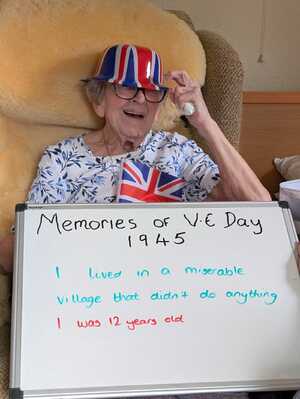 Memories of V.E Day
1945
I lived in a miserable
village that didn't do anything
I was 12 years old